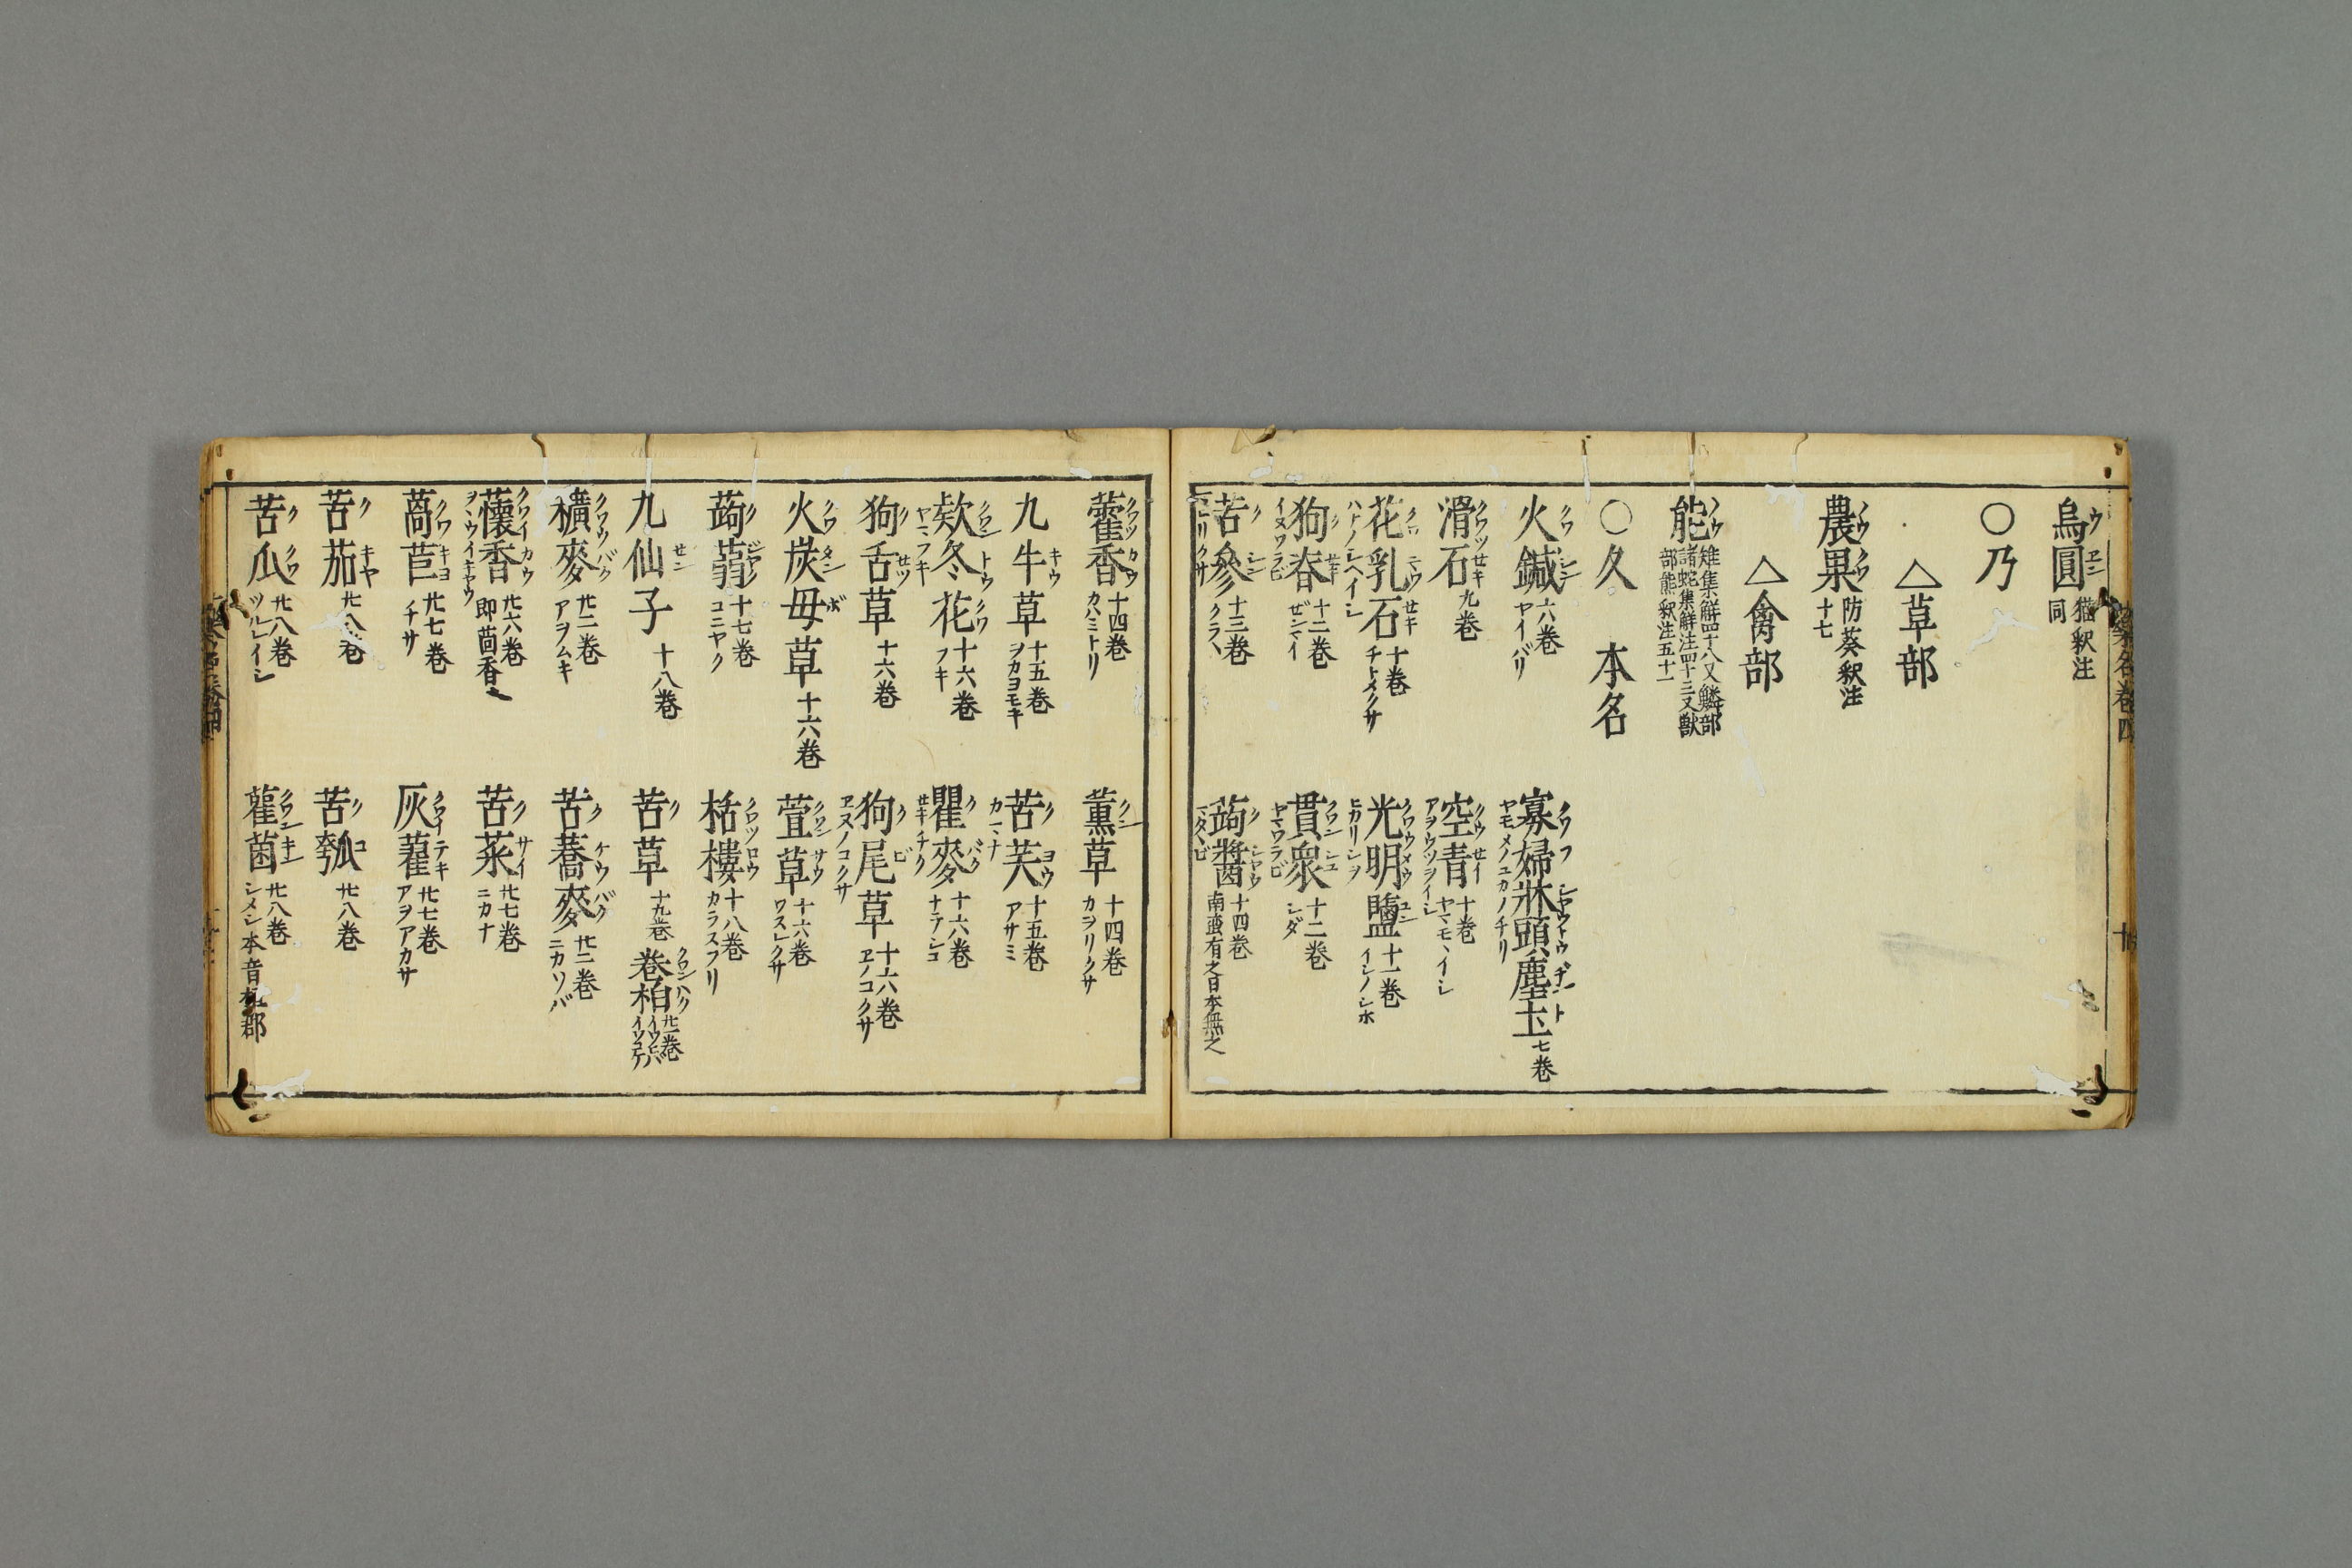 烏圓 猫釈注 同
〇乃
△草部
農果 防葵釈注 十七
△禽部
能 雉集解四十八又鱗部 諸蛇集解注四十三又獣 部熊釈注五十一
〇久 本名
火鍼 六巻 ヤイバリ
寡婦牀頭塵土 七巻 ヤモメノユカノチリ
滑石 九巻
空青 十巻 ヤマモヽイシ
花乳石 十巻 チトメクサ
光明鹽 十一巻 イシノシホ
狗脊 十二巻 ゼンマイ
貫衆 十二巻 シダ
苦參 十三巻 クラヽ
蒟醬 十四巻 南蛮有之日本無之
藿香 十四巻 カハミトリ
薫草 十四巻 カヲリクサ
九牛草 十五巻 ヲカヨモキ
苦芺 十五巻 アサミ
欵冬花 十六巻 フキ
瞿麥 十六巻 ナデシコ
狗舌草 十六巻
狗尾草 十六巻 ヱノコクサ
火炭母草 十六巻
萓草 十六巻 ワスレクサ
蒟蒻 十七巻 コニヤク
栝樓 十八巻 カラスフリ
九仙子 十八巻
苦草 十九巻
卷柏 廿一巻 イワヒバ イワコケ
穬麥 廿二巻 アヲムキ
苦蕎麥 廿二巻 ニカソバ
懐香 廿六巻 即茴香
苦菜 廿七巻 ニカナ
萵苣 廿七巻 チサ
灰藋 廿七巻 アヲアカサ
苦茄 廿八巻
苦瓠 廿八巻
苦瓜 廿八巻 ツルレイシ
藋菌 廿八巻 シメシ本音桓郡